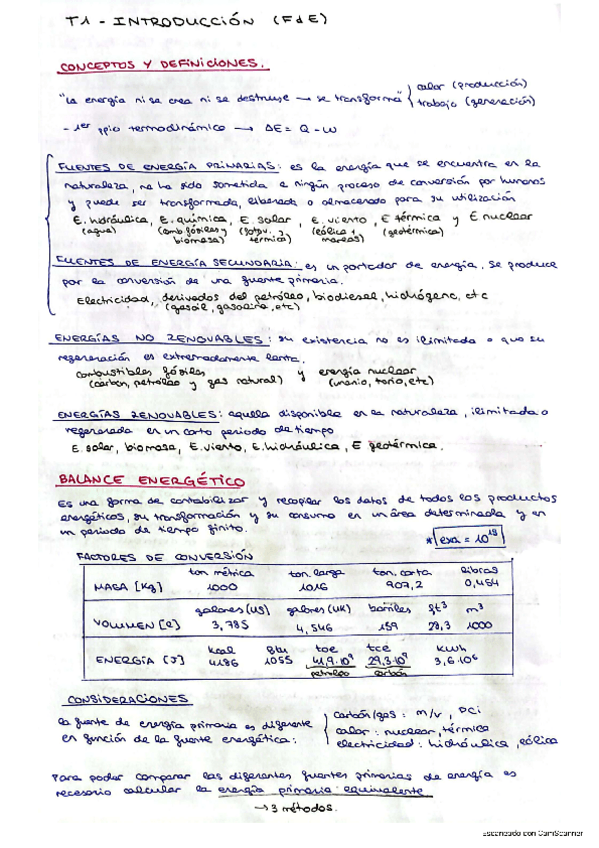 T1 - INTRODUCCIÓN (FdE)
CONCEPTOS Y DEFINICIONES.
"La energía ni se crea ni se destruye → se transforma" { calor (producción)
trabajo (generación)
- 1er ppio termodinámico → ΔE = Q - W
FUENTES DE ENERGÍA PRIMARIAS: es la energía que se encuentra en la
naturaleza, no ha sido sometida a ningún proceso de conversión por humanos
y puede ser transformada, liberada o almacenada para su utilización
E. hidráulica, E. química, E. solar, E. viento, E térmica y E nuclear
(agua) (comb. fósiles y biomasa) (fotov. y térmica) (eólica + mareas) (geotérmica)
FUENTES DE ENERGÍA SECUNDARIA: es un portador de energía. Se produce
por la conversión de una fuente primaria.
Electricidad, derivados del petróleo, biodiesel, hidrógeno, etc
(gasoil, gasolina, etc)
ENERGÍAS NO RENOVABLES: su existencia no es ilimitada o que su
regeneración es extremadamente lenta.
combustibles fósiles y energía nuclear
(carbón, petróleo y gas natural) (uranio, torio, etc)
ENERGÍAS RENOVABLES: aquella disponible en la naturaleza, ilimitada o
regenerada en un corto periodo de tiempo
E. solar, biomasa, E. viento, E. hidráulica, E geotérmica.
BALANCE ENERGÉTICO
Es una forma de contabilizar y recopilar los datos de todos los productos
energéticos, su transformación y su consumo en un área determinada y en
un periodo de tiempo finito.
* exa = 10^18
FACTORES DE CONVERSIÓN
ton métrica ton. larga ton. corta libras
MASA [Kg] 1000 1016 907,2 0,454
galones (US) galones (UK) barriles ft³ m³
VOLUMEN [l] 3,785 4,546 159 28,3 1000
kcal Btu toe tce kWh
ENERGÍA [J] 4186 1055 41,9·10⁹ 29,3·10⁹ 3,6·10⁶
petróleo carbón
CONSIDERACIONES
la fuente de energía primaria es diferente
en función de la fuente energética:
carbón/gas: m/v, PCi
calor: nuclear, térmica
electricidad: hidráulica, eólica
Para poder comparar las diferentes fuentes primarias de energía es
necesario calcular la energía primaria equivalente
→ 3 métodos.
Escaneado con CamScanner